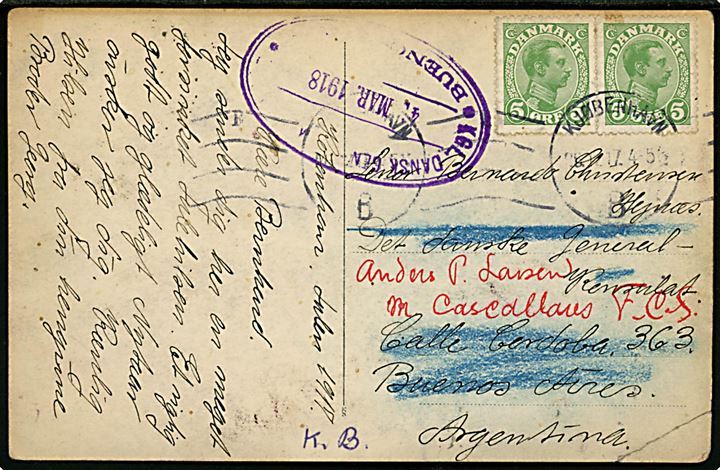 DANMARK
5 ØRE
DANMARK
5 5
KGL. DANSK GEN
BUENO
4. MAR. 1918
KJØBENHAVN
17. 4-5
B
København,
Kære Bernhard.
Jeg sender dig her en meget
Julehilsen. Et rigtig
godt og glædeligt Nytaar
ønsker jeg dig. Kærlig
Hilsen fra din hengivne
Broder
Bernardo Christensen
Det danske General-
Konsulat.
Anders P. Larsen
m Cascallares F.C.S.
Calle Cordoba. 363.
Buenos Aires.
Argentina.
K. B.